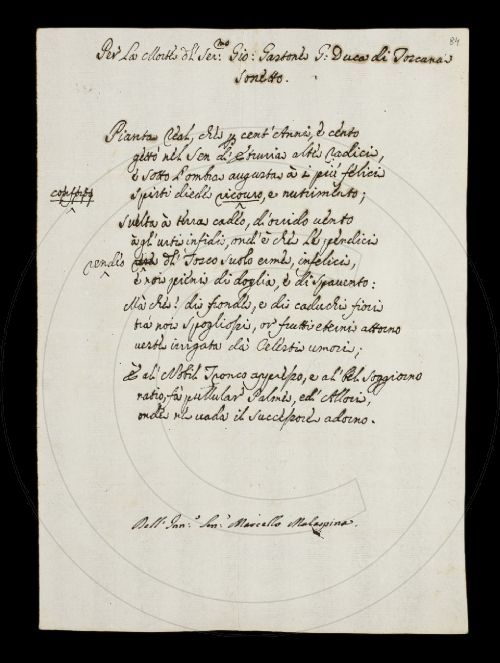 84
Per La Morte del Ser.mo Gio: Gastone G: Duca di Toscana
Sonetto.
Pianta real, che p cent'Anni, e cento
gettò nel Sen d'Etruria alte radici,
e sotto l'ombra augusta à i più felici
conforto
spirti diede ricouro, e nutrimento;
suelta à terra cadeo, d'orrido uento
àgl'urti infidi, ond'è che le pendici
rendèo del Tosco suolo erme, infelici,
e noi pieni di doglia, e di spauento:
Mà che! di fronde, e di caduchi fiori
tra noi spogliossi, or frutti eterni attorno
uerte irrigata da Celesti umori;
E al Nobil Tronco appresso, e al bel Soggiorno
ratio, fà pullular Palme, ed Allori,
onde ne uada il successore adorno.
Dell' Sen.r Marcello Malaspina.